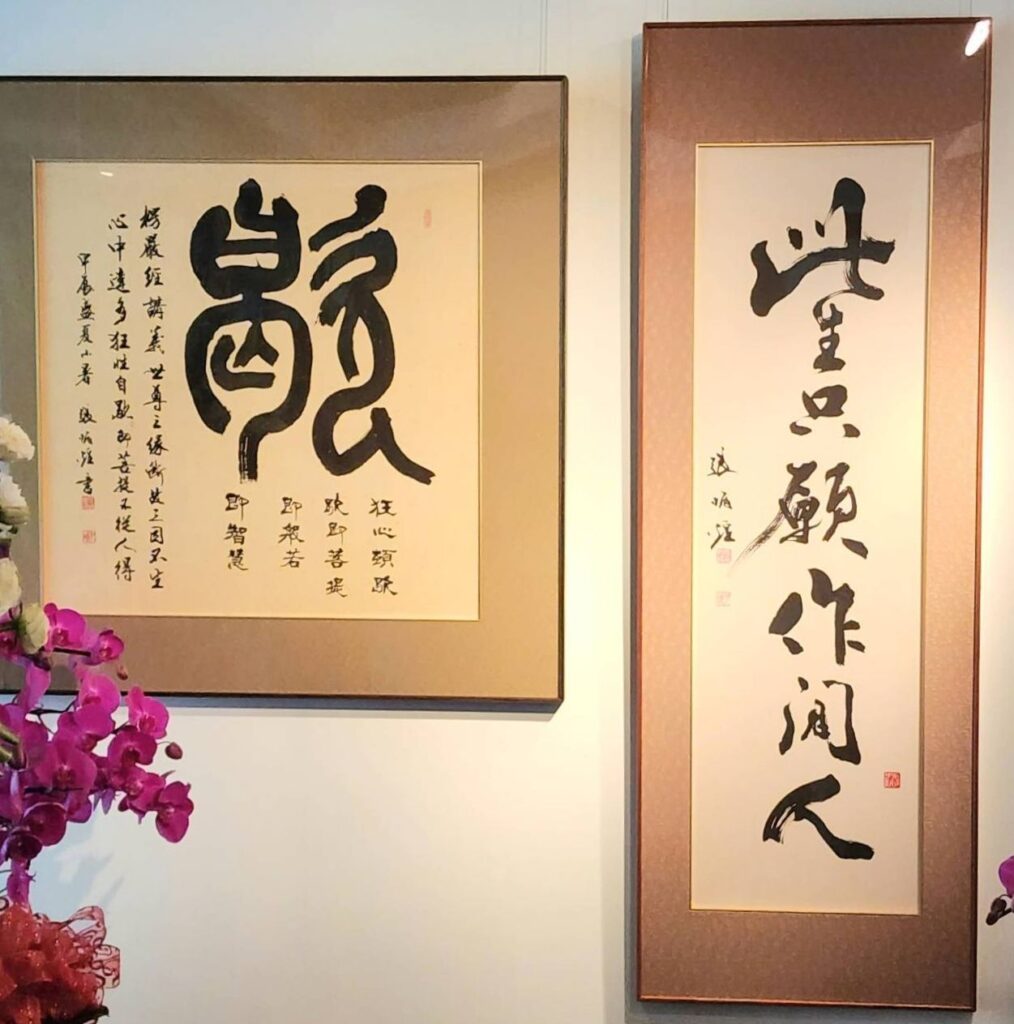 此生只願作閒人
張炳煌
歇
狂心頓歇
歇即菩提
即般若
即智慧
楞嚴經講義世尊三緣斷故三因不生
心中達多狂性自歇即菩提不從人得
甲辰盛夏小暑 張炳煌書